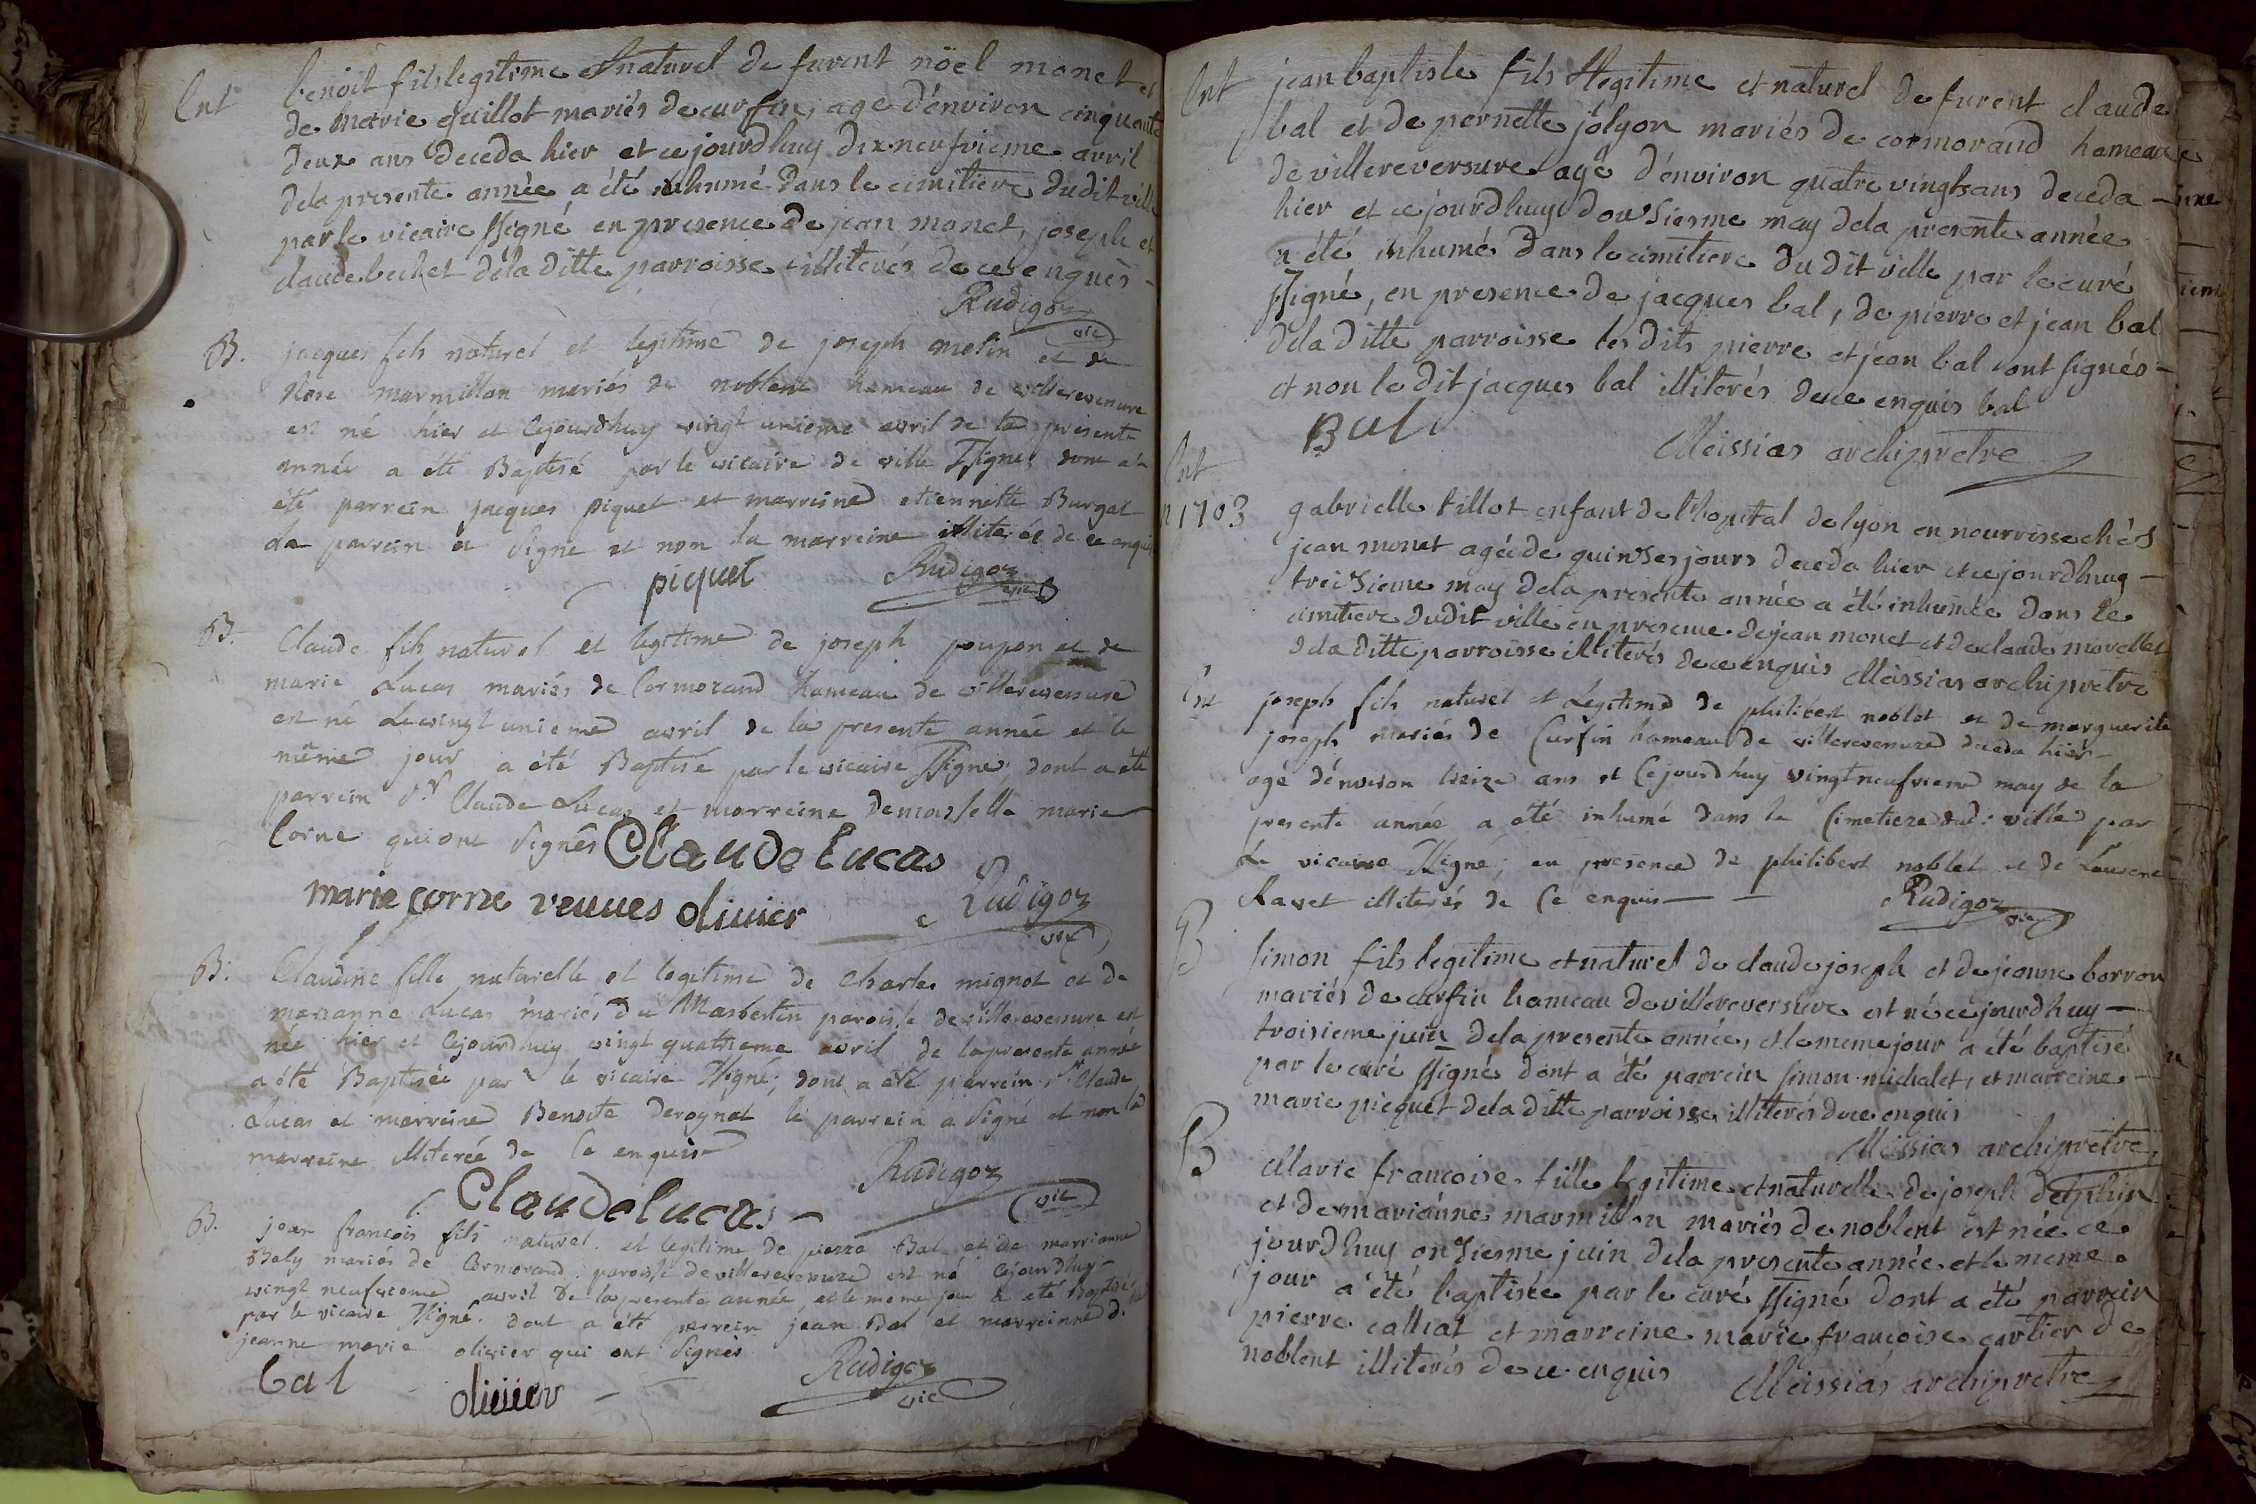 Ent benoit fils legitime et naturel de furent nöel monet et
de marie guillot mariés de curfin, agé d'environ cinquante
deux ans deceda hier et ce jourdhuy dix-neufvieme avril
dela presente année a été inhumé dans le cimitiere dudit ville
par le vicaire ssigné en presence de jean monet, joseph et
claude bechet dela ditte parroisse illiterés de ce enquis -
Rudigoz
vic
B. jacques fils naturel et legitime de joseph molin et de
Rose marmillon mariés de noblent hameau de villereversure
est né hier et Cejourdhuy vingt unieme avril de la presente
année a été Baptisé par le vicaire de ville ssigné, dont a
été parrein jacques piquet et marreine etiennette Burgat
da parrein a signé et non la marreine illiterée de ce enquis
piquet Rudigoz
vic
B. Claude fils naturel et legitime de joseph poupon et de
marie Lucas mariés de Cormorand hameau de villereversure
est né Le vingt unieme avril de la presente année et le
même jour a été Baptisé par le vicaire ssigné, dont a été
parrein s.r Claude Lucas et marreine demoiselle marie
Corne qui ont signés Claude Lucas
marie corne veuves olivier Rudigoz
vic
B. Claudine fille naturelle et legitime de Charles mignot et de
marianne Lucas mariés du Masbertin paroisse de villereversure est
née hier et Cejourdhuy vingt quatrieme avril de la presente année
a été Baptisée par le vicaire ssigné; dont a été parrein s.r Claude
Lucas et marreine Benoite derognat le parrein a signé et non la
marreine illiterée de Ce enquis
Rudigoz
Claude lucas
vic
B. jean francois fils naturel et legitime de pierre Bal et de marrianne
Bely mariés de Cormorand paroisse de villereversure est né Cejourdhuy
vingt neufvieme avril de la presente année, et le meme jour a été Baptisé
par le vicaire ssigné. dont a été parrein jean Bal et marreinne d.
jeanne marie olivier qui ont signés
bal olivier Rudigoz
vic
Ent jean baptiste fils legitime et naturel de furent claude
bal et de pernette jolyon mariés de cormorand hameau
de villereversure agé d'environ quatre vingts ans deceda -
hier et ce jourdhuy douSiesme may dela presente année
a été inhumé dans le cimitiere du dit ville par le curé
ssigné, en presence de jacques bal, de pierre et jean bal
dela ditte parroisse les dits pierre et jean bal ont signés -
et non le dit jacques bal illiterés dece enquis bal
Bal
Meissias archipretre
Ent
n 1703 gabrielle tillot enfant de l'hopital de lyon en nourrisse chés
jean monet agée de quinSes jours deceda hier et ce jourdhuy -
treiSieme may dela presente année a été inhumée dans le
cimitiere dudit ville en presence de jean monet et de claude
dela ditte parroisse illiterés de ce enquis Meissias archipretre
Ent joseph fils naturel et Legitime de philibert noblet et de marguerite
joseph mariés de Curfin hameau de villereversure deceda hier
agé d'environ treize ans et Cejourdhuy vingt neufvieme may de la
presente année a été inhumé dans le Cimetiere dud: ville par
Le vicaire ssigné; en presence de philibert noblet et de Laurent
Ravet illiterés de Ce enquis
Rudigoz
vic
B Simon fils legitime et naturel de claude joseph et de jeanne borron
mariés de curfin hameau de villereversure est né ce jourdhuy -
troisieme juin dela presente année, et le meme jour a été baptisé
par le curé ssigné dont a été parrein simon michalet, et marreine
marie picquet dela ditte parroisse illiterés dece enquis
Meissias archipretre
B Marie francoise fille legitime et naturelle de joseph delphin
et de marianne marmillon mariés de noblent est née ce
jourdhuy onSiesme juin dela presente année et le meme
jour a été baptisée par le curé ssigné dont a été parrein
pierre calliat et marreine marie francoise carlier de
noblent illiterés de ce enquis
Meissias archipretre